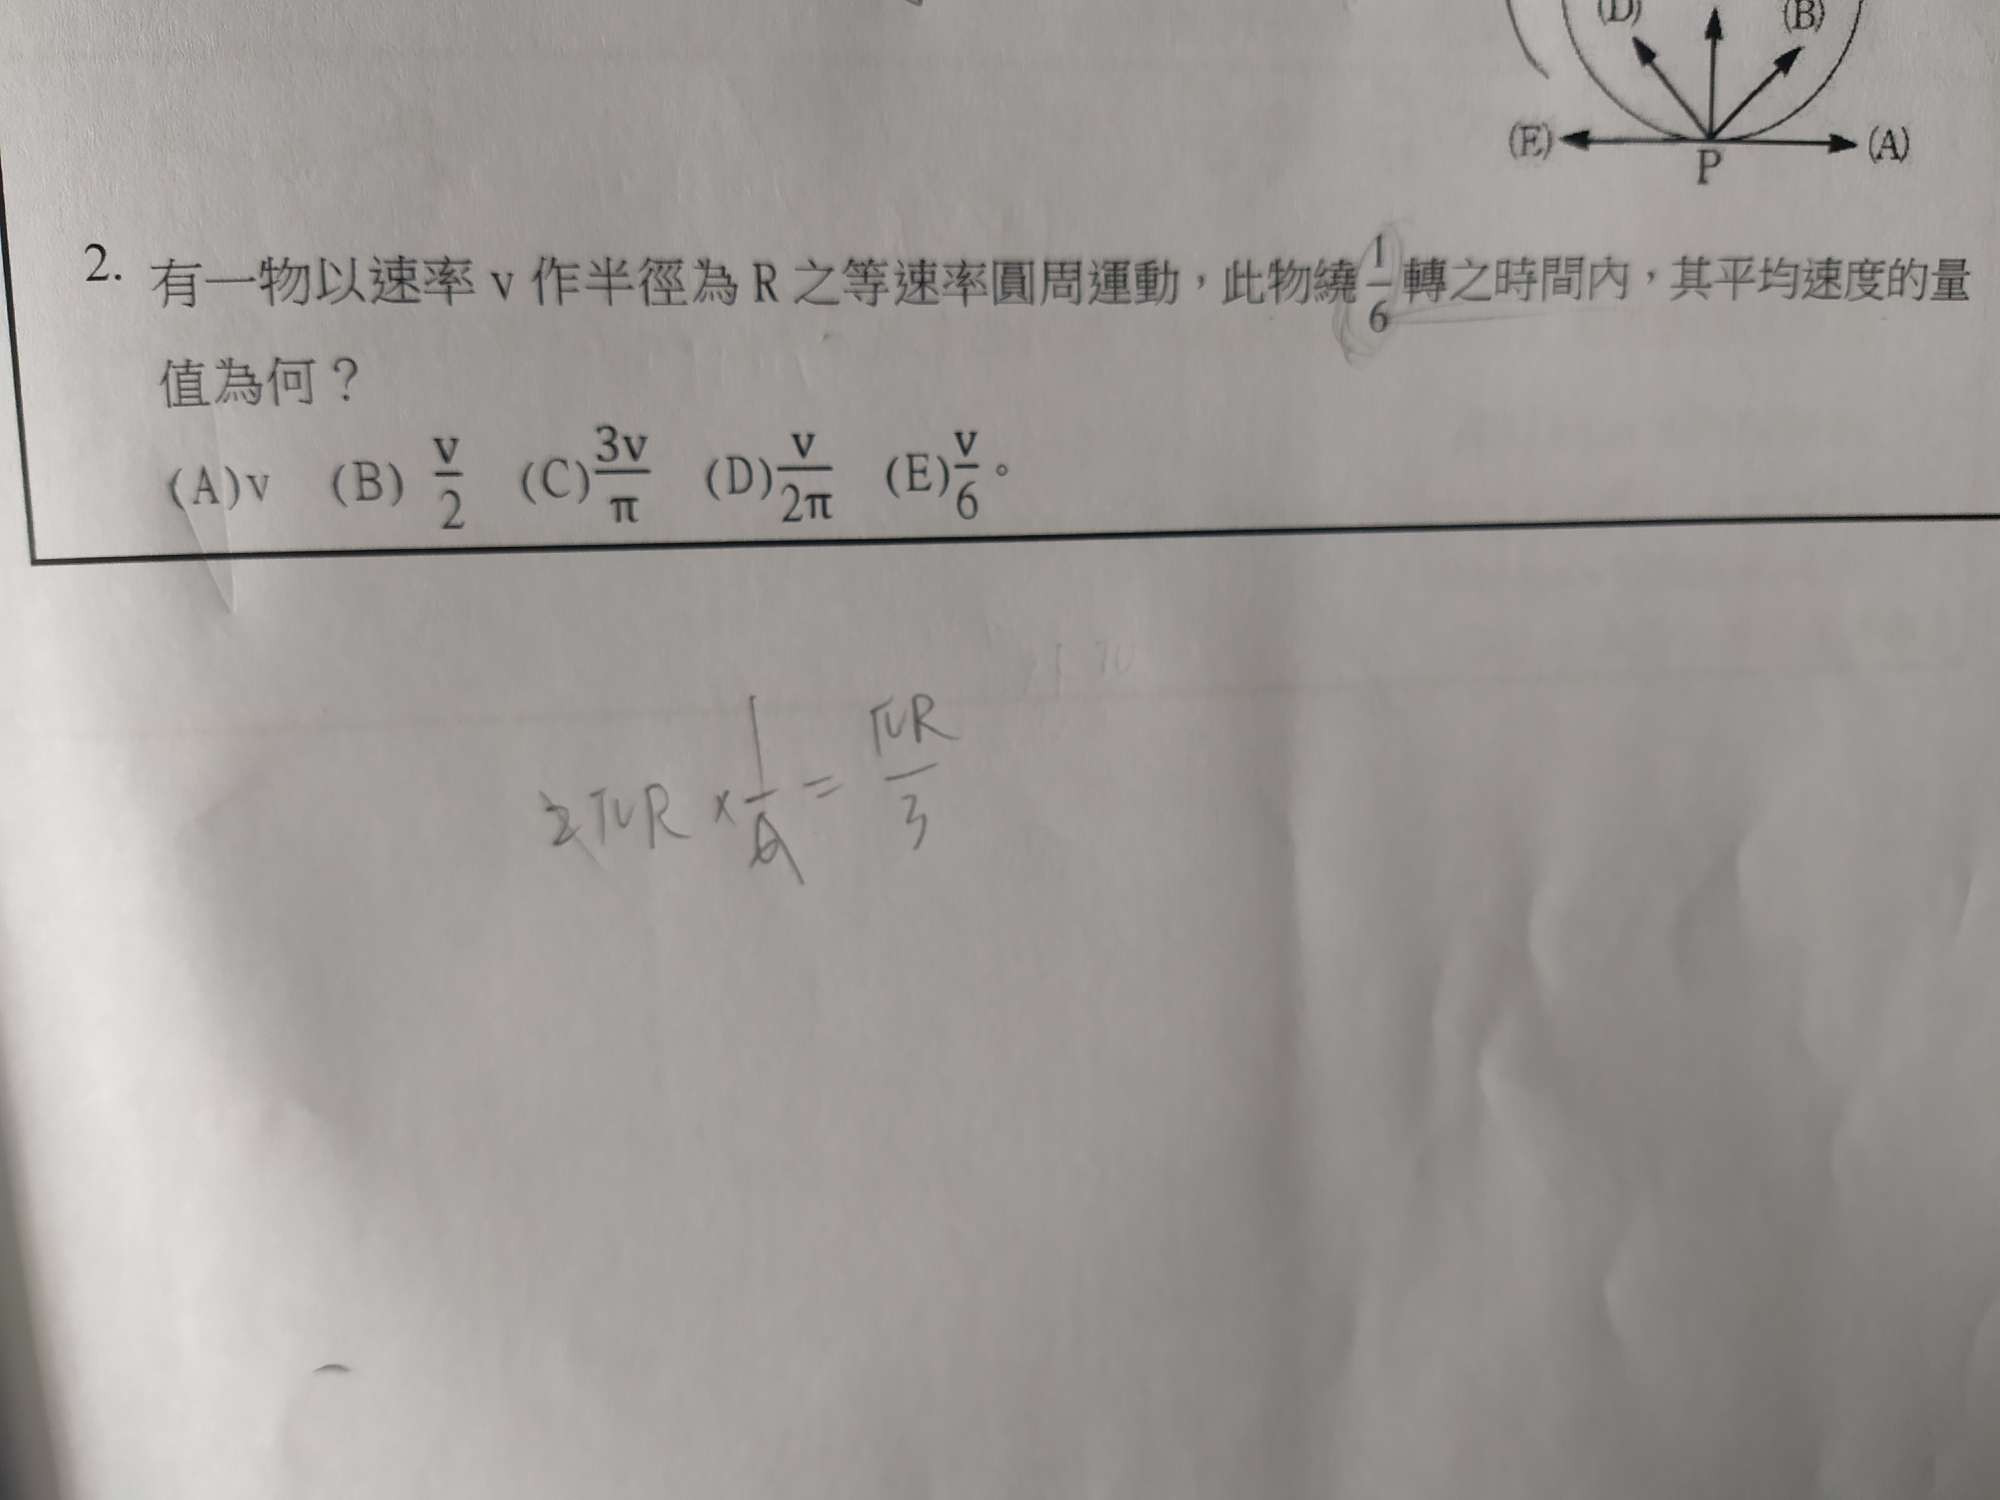 (D)
(B)
(E)
P
(A)
2. 有一物以速率 v 作半徑為 R 之等速率圓周運動，此物繞 1/6 轉之時間內，其平均速度的量
值為何？
(A)v (B) v/2 (C) 3v/π (D) v/2π (E) v/6。
2πR × 1/6 = πR/3